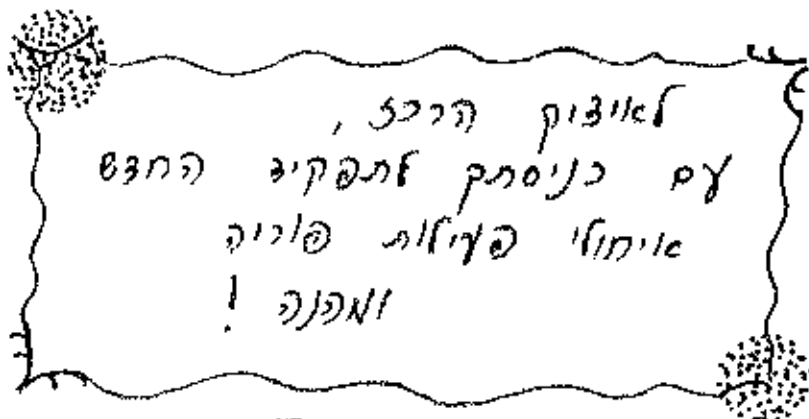 לאיציק הרכז,
עם כניסתך לתפקיד החדש
איחולי פעילות פוריה
ומהנה!